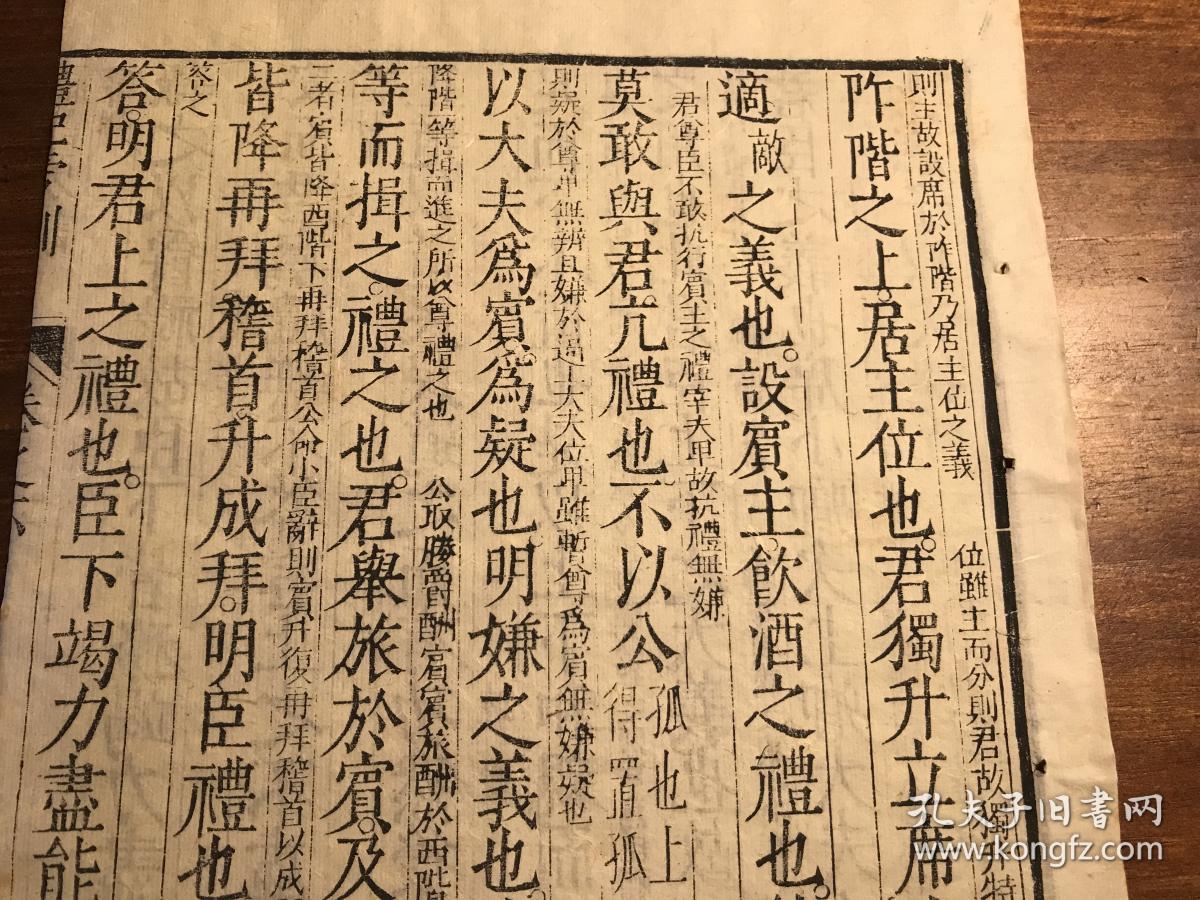 則主故設席於阼階乃居主位之義 位雖主而分則君故獨升特
阼階之上居主位也君獨升立席
君尊臣不敢抗行賓主之禮宰夫卑故抗禮無嫌
適敵之義也設賓主飲酒之禮也
則疑於尊卑無辨且嫌於逼上大夫位卑雖暫尊爲賓無嫌疑也
莫敢與君亢禮也不以公孤也上得置孤
降階等揖而進之所以尊禮之也 公取媵爵酬賓賓旅酬於西階
以大夫爲賓爲疑也明嫌之義也
三者賓皆降西階下再拜稽首公命小臣辭則賓升復再拜稽首以成
等而揖之禮之也君舉旅於賓及
答之
皆降再拜稽首升成拜明臣禮也
答明君上之禮也臣下竭力盡能
孔夫子旧书网
www.kongfz.com